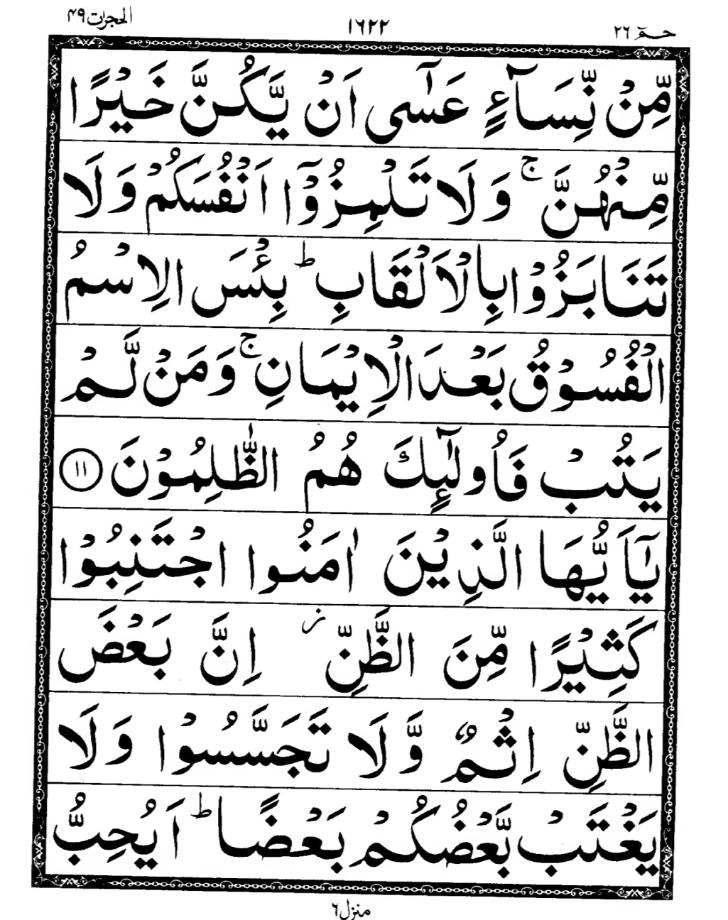 الحجرات ٤٩ ١٦٢٢ حٰمٓ ٢٦
مِّنْ نِّسَآءٍ عَسٰٓى اَنْ يَّكُنَّ خَيْرًا
مِّنْهُنَّ ۚ وَلَا تَلْمِزُوْٓا اَنْفُسَكُمْ وَلَا
تَنَابَزُوْا بِالْاَلْقَابِ ؕ بِئْسَ الِاسْمُ
الْفُسُوْقُ بَعْدَ الْاِيْمَانِ ۚ وَمَنْ لَّمْ
يَتُبْ فَاُولٰٓئِكَ هُمُ الظّٰلِمُوْنَ ۝١١
يٰٓاَيُّهَا الَّذِيْنَ اٰمَنُوا اجْتَنِبُوْا
كَثِيْرًا مِّنَ الظَّنِّ ز اِنَّ بَعْضَ
الظَّنِّ اِثْمٌ وَّلَا تَجَسَّسُوْا وَلَا
يَغْتَبْ بَّعْضُكُمْ بَعْضًا ؕ اَيُحِبُّ
منزل ٦